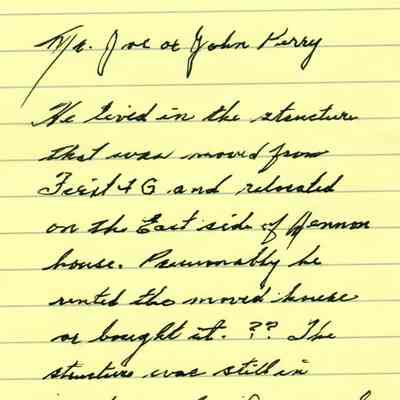 Mr. Joe or John Perry
He lived in the structure
that was moved from
First & G and relocated
on the East side of
house. Presumably he
rented the moved house
or bought it. ?? The
structure was still in